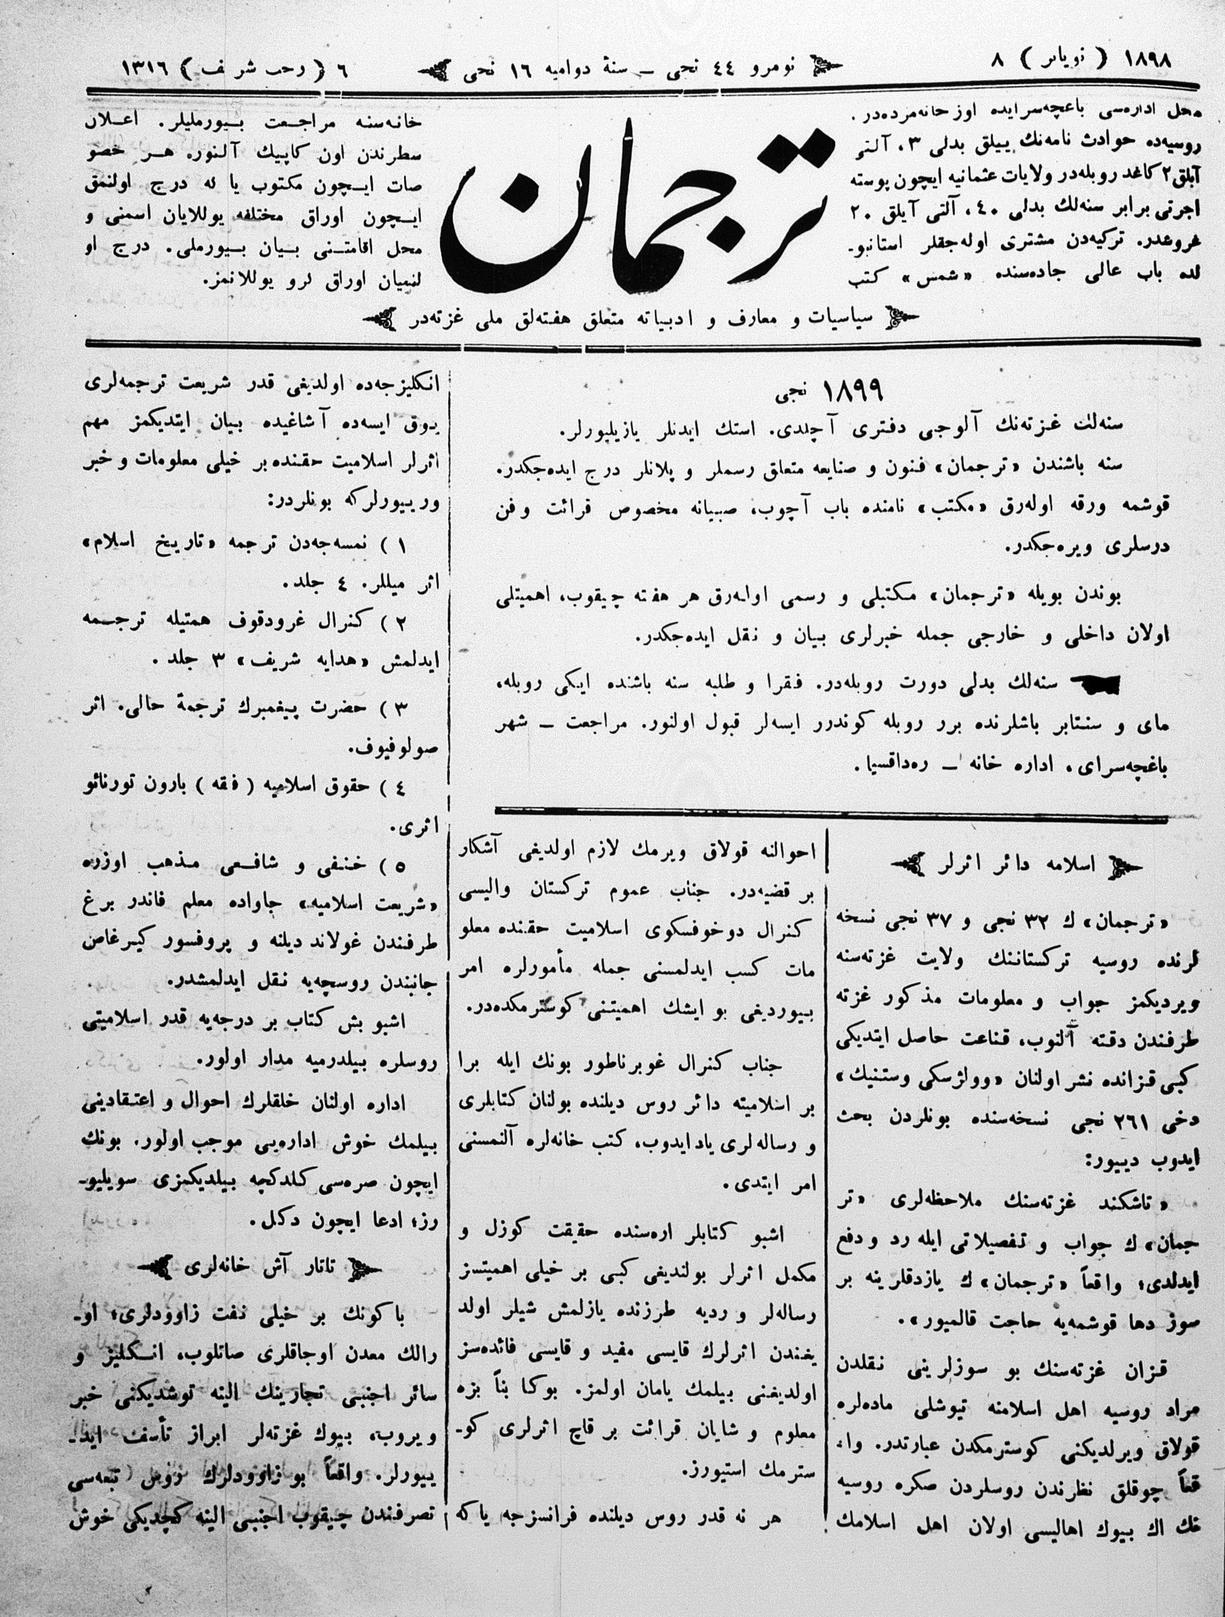 ١٨٩٨ ( نويابر ) ٨
نومرو ٤٤ نجى — سنهٔ دواميه ١٦ نجى
٦ ( رجب شريف ) ١٣١٦
محل اداره‌سى باغچه‌سرايده اوز خانه‌مزده‌در.
روسيه‌ده حوادث نامه‌نك ييلق بدلى ٣، آلتى
آيلق ٢ كاغد روبله‌در ولايات عثمانيه ايچون پوسته
اجرتى برابر سنه‌لك بدلى ٤٠، آلتى آيلق ٢٠
غروشدر. تركيه‌دن مشترى اوله‌جقلر استانبو-
لده باب عالى جاده‌سنده «شمس» كتب
ترجمان
خانه‌سنه مراجعت بيورمليلر. اعلان
سطرندن اون كاپيك آلنور. هر خصو
صات ايچون مكتوب يا له درج اولنمق
ايچون اوراق مختلفه يوللايان اسمنى و
محل اقامتنى بيان بيورملى. درج او
لنميان اوراق كرو يوللانمز.
سياسيات و معارف و ادبياته متعلق هفته‌لق ملى غزته‌در
١٨٩٩ نجى
سنه‌لك غزته‌نك آلوجى دفترى آچلدى. استك ايدنلر يازيليورلر.
سنه باشندن «ترجمان» فنون و صنايعه متعلق رسملر و پلانلر درج ايده‌جكدر.
قوشمه ورقه اوله‌رق «مكتب» نامنده باب آچوب، صبيانه مخصوص قرائت و فن
درسلرى ويره‌جكدر.
بوندن بويله «ترجمان» مكتبلى و رسمى اوله‌رق هر هفته چيقوب، اهميتلى
اولان داخلى و خارجى جمله خبرلرى بيان و نقل ايده‌جكدر.
سنه‌لك بدلى دورت روبله‌در. فقرا و طلبه سنه باشنده ايكى روبله،
ماى و سنتابر باشلرنده برر روبله كوندرر ايسه‌لر قبول اولنور. مراجعت — شهر
باغچه‌سراى، اداره خانه — ره‌داقسيا.
اسلامه دائر اثرلر
«ترجمان» ك ٣٢ نجى و ٣٧ نجى نسخه
لرنده روسيه تركستاننك ولايت غزته‌سنه
ويرديكمز جواب و معلومات مذكور غزته
طرفندن دقته آلنوب، قناعت حاصل ايتديكى
كبى قزانده نشر اولنان «وولژسكى وستنيك»
دخى ٢٦١ نجى نسخه‌سنده بونلردن بحث
ايدوب دييور:
«تاشكند غزته‌سنك ملاحظه‌لرى «تر
جمان» ك جواب و تفصيلاتى ايله رد و دفع
ايدلدى؛ واقعاً «ترجمان» ك يازدقلرينه بر
سوز دها قوشمه‌يه حاجت قالميور».
قزان غزته‌سنك بو سوزلرينى نقلدن
مراد روسيه اهل اسلامنه تيوشلى ماده‌لره
قولاق ويرلديكنى كوسترمكدن عبارتدر. وا،
قعاً چوقلق نظرندن روسلردن صكره روسيه
نك اك بيوك اهاليسى اولان اهل اسلامك
احوالنه قولاق ويرمك لازم اولديغى آشكار
بر قضيه‌در. جناب عموم تركستان واليسى
كنرال دوخوفسكوى اسلاميت حقنده معلو
مات كسب ايدلمسنى جمله مأمورلره امر
بيورديغى بو ايشك اهميتنى كوسترمكده‌در.
جناب كنرال غوبرناطور بونك ايله برا
بر اسلاميته دائر روس ديلنده بولنان كتابلرى
و رساله‌لرى ياد ايدوب، كتب خانه‌لره آلنمسنى
امر ايتدى.
اشبو كتابلر اره‌سنده حقيقت كوزل و
مكمل اثرلر بولنديغى كبى بر خيلى اهميتسز
رساله‌لر و رديه طرزنده يازلمش شيلر اولد
يغندن اثرلرك قايسى مفيد و قايسى فائده‌سز
اولديغنى بيلمك يامان اولمز. بوكا بناً بزه
معلوم و شايان قرائت بر قاچ اثرلرى كو-
سترمك استيورز.
هر نه قدر روس ديلنده فرانسزجه يا كه
انكليزجه‌ده اولديغى قدر شريعت ترجمه‌لرى
يوق ايسه‌ده آشاغيده بيان ايتديكمز مهم
اثرلر اسلاميت حقنده بر خيلى معلومات و خبر
ويرييورلر كه بونلردر:
١ ) نمسه‌جه‌دن ترجمه «تاريخ اسلام»
اثر ميللر. ٤ جلد.
٢ ) كنرال غرودقوف همتيله ترجمه
ايدلمش «هدايه شريف» ٣ جلد.
٣ ) حضرت پيغمبرك ترجمهٔ حالى. اثر
صولوفيوف.
٤ ) حقوق اسلاميه ( فقه ) بارون تورنائو
اثرى.
٥ ) حنفى و شافعى مذهب اوزره
«شريعت اسلاميه» جاواده معلم فاندر برغ
طرفندن غولاند ديلنه و پروفسور كيرغاص
جانبندن روسچه‌يه نقل ايدلمشدر.
اشبو بش كتاب بر درجه‌يه قدر اسلاميتى
روسلره بيلدرميه مدار اولور.
اداره اولنان خلقلرك احوال و اعتقادينى
بيلمك خوش اداره‌يى موجب اولور. بونك
ايچون صره‌سى كلدكچه بيلديكمزى سويليو-
رز؛ ادعا ايچون دكل.
تاتار آش خانه‌لرى
باكونك بر خيلى نفت زاوودلرى؛ او-
رالك معدن اوجاقلرى صاتلوب، انكليز و
سائر اجنبى تجارينك الينه توشديكنى خبر
ويروب، بيوك غزته‌لر ابراز تأسف ايد-
ييورلر. واقعاً بو زاوودلرك روس تبعه‌سى
تصرفندن چيقوب اجنبى الينه كچديكى خوش